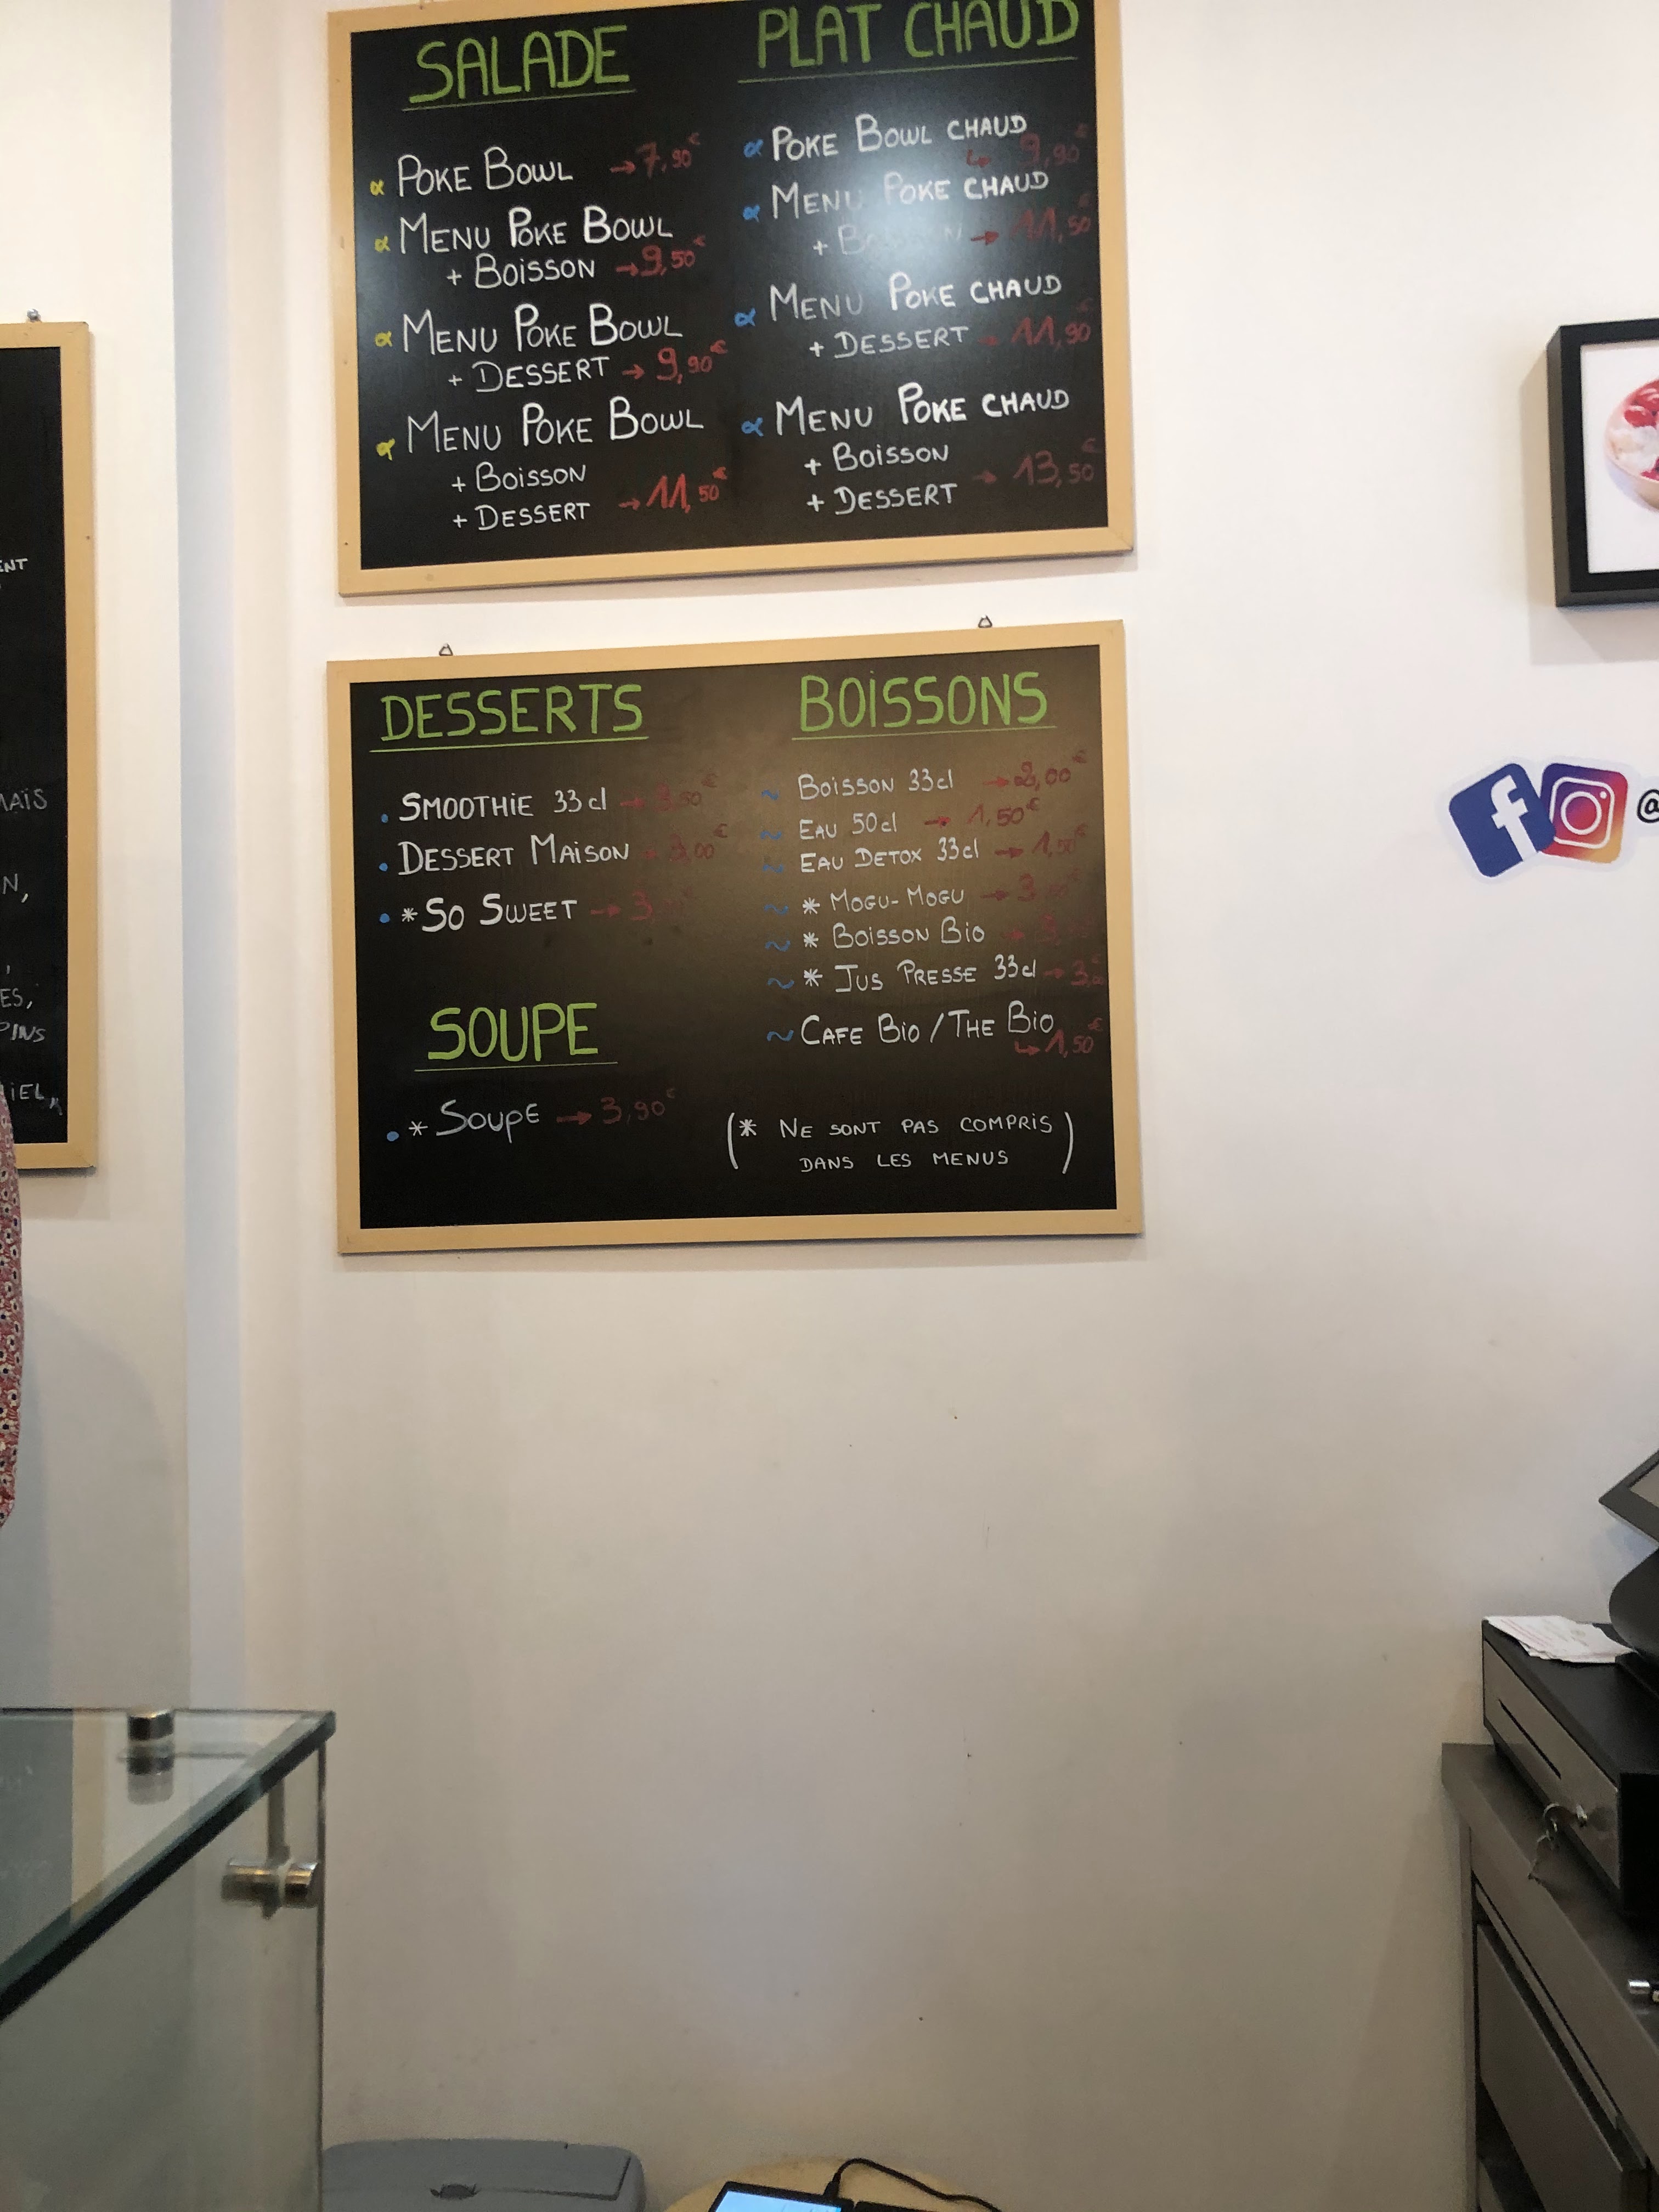 SALADE
POKE BOWL → 7,90€
MENU POKE BOWL
+ BOISSON → 9,50€
MENU POKE BOWL
+ DESSERT → 9,90€
MENU POKE BOWL
+ BOISSON
+ DESSERT → 11,50€
PLAT CHAUD
POKE BOWL CHAUD
↳ 9,90€
MENU POKE CHAUD
+ → 11,50€
MENU POKE CHAUD
+ DESSERT → 11,90€
MENU POKE CHAUD
+ BOISSON
+ DESSERT → 13,50€
DESSERTS
SMOOTHIE 33cl →
DESSERT MAISON
* SO SWEET →
SOUPE
* SOUPE → 3,90€
BOISSONS
BOISSON 33cl → 2,00€
EAU 50cl → 1,50€
EAU DETOX 33cl →
* MOGU-MOGU →
* BOISSON BIO
* JUS PRESSE 33cl →
CAFE BIO / THE BIO
↳ 1,50€
(* NE SONT PAS COMPRIS
DANS LES MENUS)
MAÏS
PINS
f
@